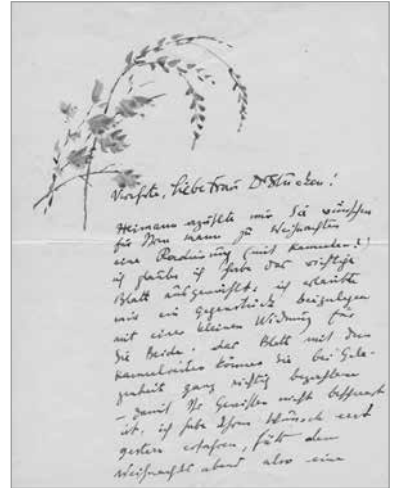 Verehrte, liebe Frau Dr Stucken!
Heimann erzählte mir Sie wünschen
für Ihren Mann zu Weihnachten
eine Radierung (mit Kamelen?)
ich glaube ich habe das richtige
Blatt ausgewählt. ich erlaubte
mir ein Gegenstück beizulegen
mit einer kleinen Widmung für
Sie Beide. das Blatt mit dem
Kamelreiter können Sie bei Gele-
genheit ganz richtig bezahlen
– damit Ihr Gewissen nicht
ist. ich habe Ihren Wunsch erst
gestern erfahren, für den
Weihnachtsabend also eine